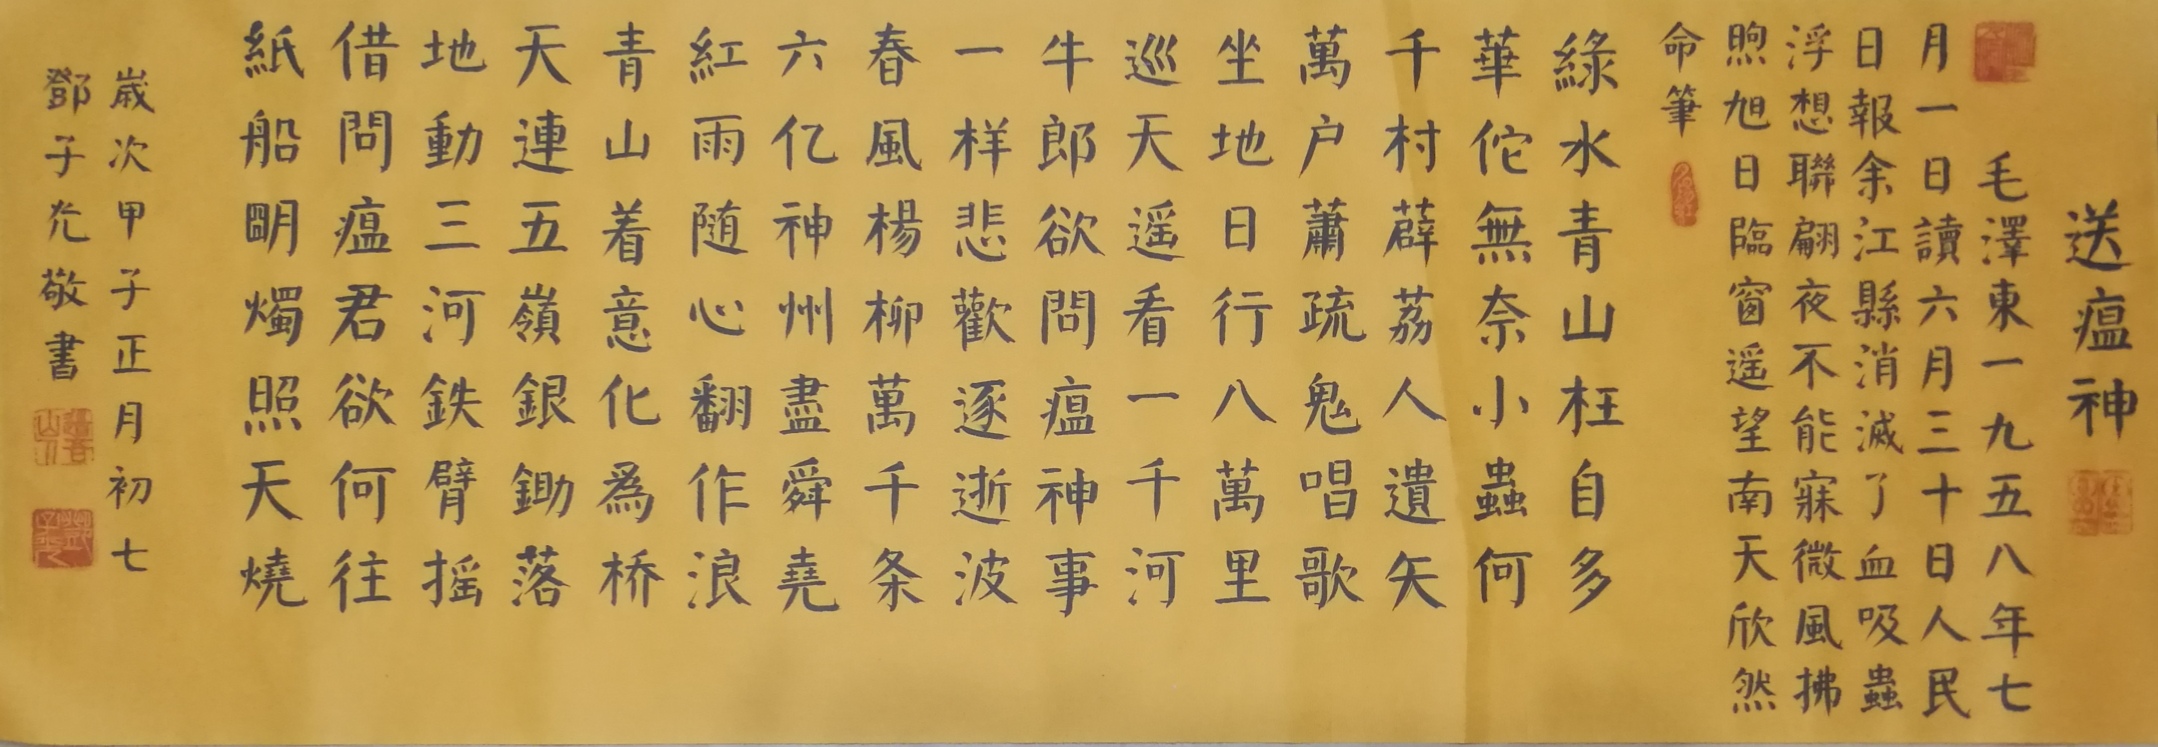 送瘟神
毛澤東一九五八年七
月一日讀六月三十日人民
日報余江縣消滅了血吸蟲
浮想聯翩夜不能寐微風拂
煦旭日臨窗遥望南天欣然
命筆
綠水青山枉自多
華佗無奈小蟲何
千村薜荔人遺矢
萬户蕭疏鬼唱歌
坐地日行八萬里
巡天遥看一千河
牛郎欲問瘟神事
一样悲歡逐逝波
春風楊柳萬千条
六亿神州盡舜堯
紅雨随心翻作浪
青山着意化爲桥
天連五嶺銀鋤落
地動三河鉄臂摇
借問瘟君欲何往
紙船明燭照天燒
歲次甲子正月初七
鄧子允敬書